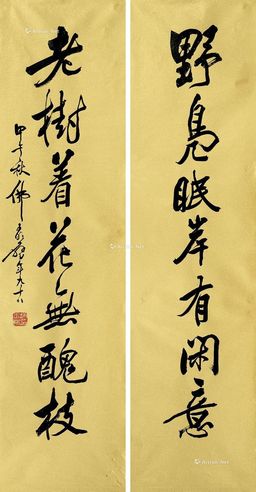 野鳧眠岸有閑意
老樹着花無醜枝
甲午秋佛年九十八